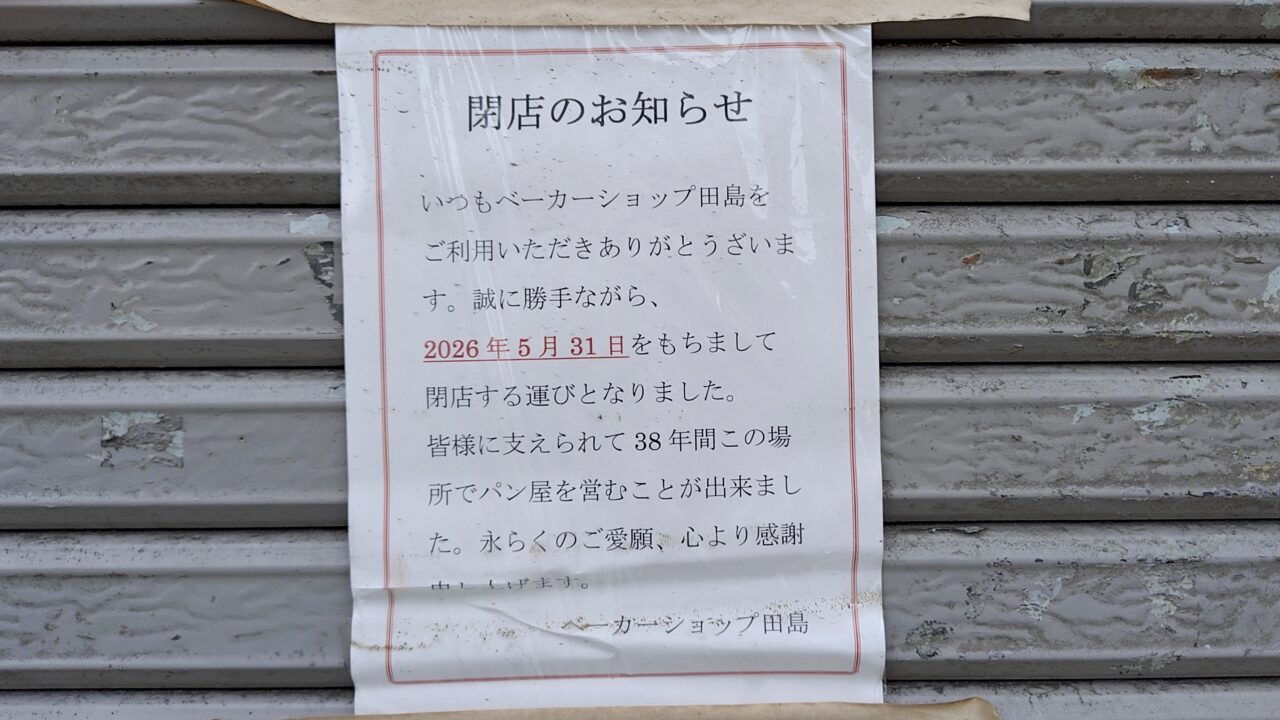 閉店のお知らせ
いつもベーカーショップ田島を
ご利用いただきありがとうざいま
す。誠に勝手ながら、
2026年5月31日をもちまして
閉店する運びとなりました。
皆様に支えられて38年間この場
所でパン屋を営むことが出来まし
た。永らくのご愛願、心より感謝
申し上げます。
ベーカーショップ田島